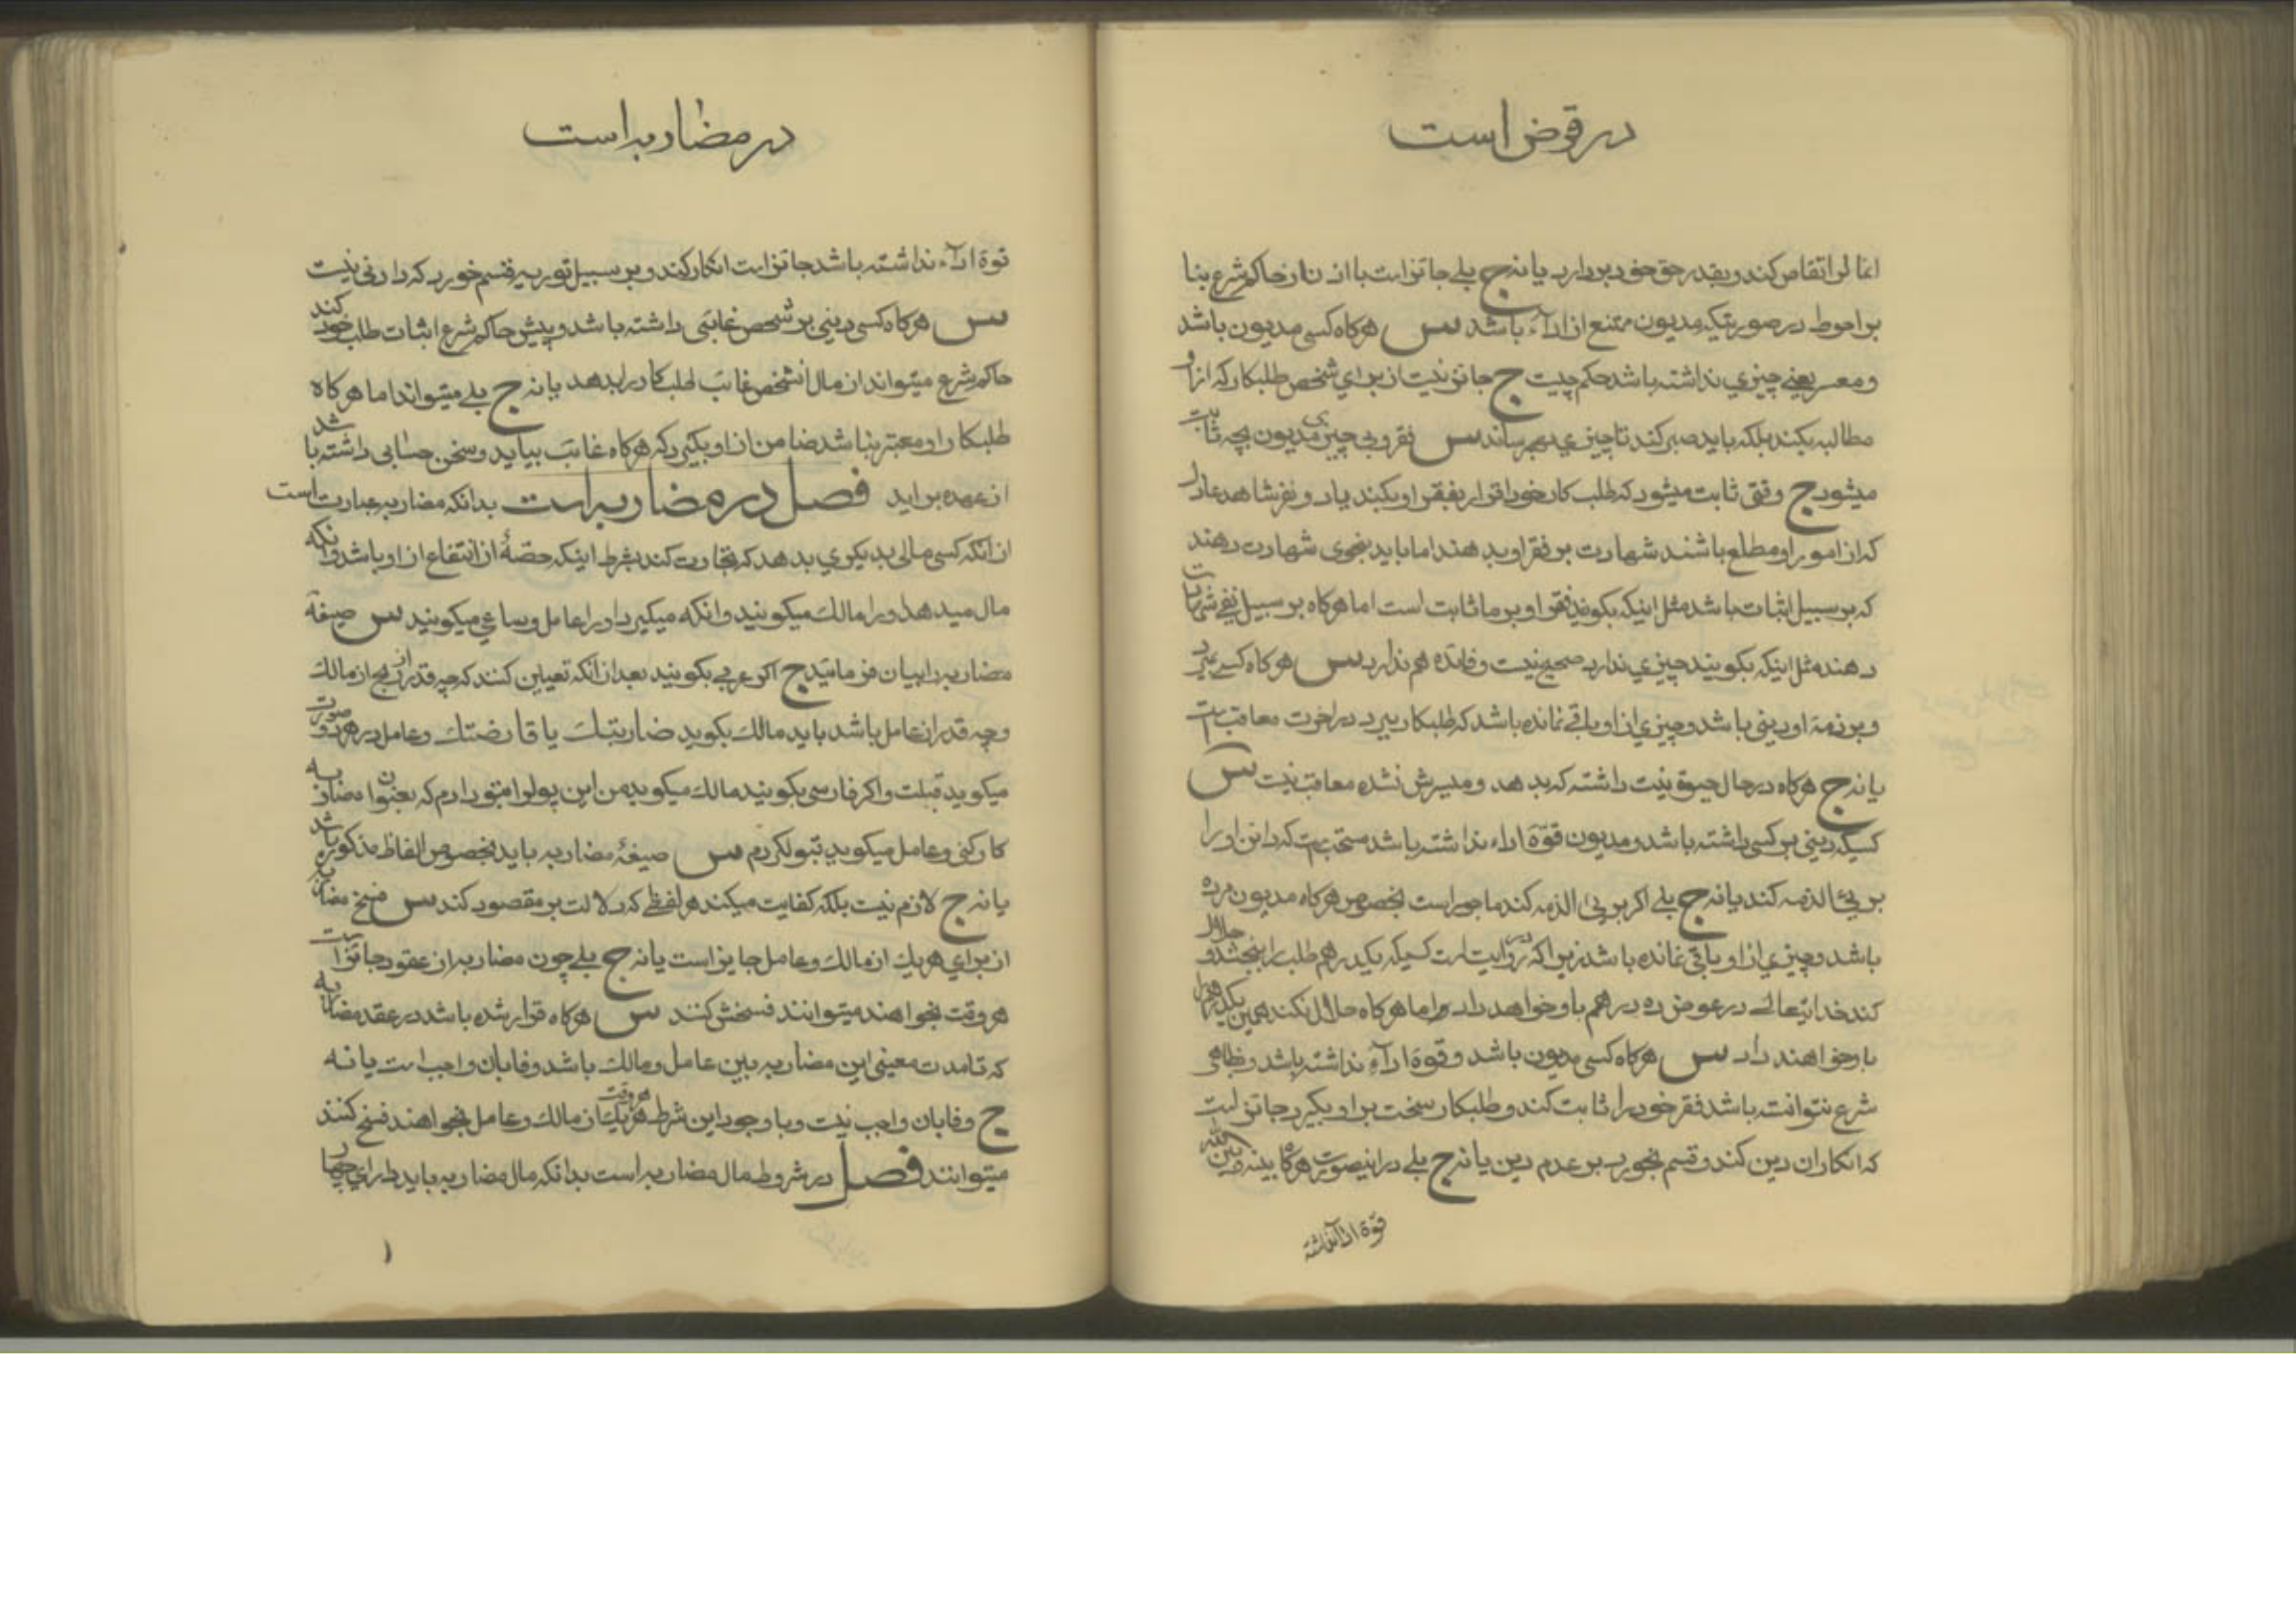 در قرض است
انمال را تقاص کند و بقدر حق خود بردارد یا نه ج بلی جائز است با اذن از حاکم شرع بنا
بر احوط در صورتیکه مدیون ممتنع از اداء باشد س هرگاه کسی مدیون باشد
و معسر یعنی چیزی نداشته باشد حکم چیست ج جائز نیست از برای شخص طلبکار که از او
مطالبه بکند بلکه باید صبر کند تا چیزی بهم رساند س فقر و بی چیزی مدیون بچه ثابت
میشود ج وقتی ثابت میشود که طلب کار خود اقرار بفقر او بکند یا دو نفر شاهد عادل
که از امور او مطلع باشند شهادت بر فقر او بدهند اما باید بنحوی شهادت دهند
که بر سبیل اثبات باشد مثل اینکه بگویند فقر او بر ما ثابت است اما هرگاه بر سبیل نفی شهادت
دهند مثل اینکه بگویند چیزی ندارد صحیح نیست و فائده هم ندارد س هرگاه کسی بمیرد
و بر ذمهٔ او دینی باشد و چیزی از او باقی نمانده باشد که طلبکار ببرد در اخرت معاقب است
یا نه ج هرگاه در حال حیوة نیت داشته که بدهد و میسرش نشده معاقب نیست س
کسیکه دینی بر کسی داشته باشد و مدیون قوّة اداء نداشته باشد مستحب است که دائن او را
برئ الذمه کند یا نه ج بلی اگر برئ الذمه کند ماجور است بخصوص هرگاه مدیون مرده
باشد و چیزی از او باقی نمانده باشد زیرا که در روایت است کسیکه یکدرهم طلب را ببخشد و حلال
کند خدایتعالی در عوض ده درهم باو خواهد داد و اما هرگاه حلال نکند همین یکدرهم را
باو خواهند داد س هرگاه کسی مدیون باشد و قوة اداء نداشته باشد و نزد حاکم
شرع نتوانسته باشد فقر خود را ثابت کند و طلبکار سخت بر او بگیرد جائز است
که انکار ان دین کند و قسم بخورد بر عدم دین یا نه ج بلی در اینصورت هرگاه بینه و بین الله
قوّة اداء نداشته
در مضاربه است
قوة اداء نداشته باشد جائز است انکار کند و بر سبیل توریه قسم خورد که دادنی نیست
س هرگاه کسی دینی بر شخص غائبی داشته باشد و پیش حاکم شرع اثبات طلب خود کند
حاکم شرع میتواند از مال انشخص غائب طلبکار را بدهد یا نه ج بلی میتواند اما هرگاه
طلبکار او معتبر نباشد ضامن از او بگیرد که هرگاه غائب بیاید و سخن حسابی داشته باشد
از عهده بر اید فصل در مضاربه است بدانکه مضاربه عبارت است
از انکه کسی مالی بدیگری بدهد که تجارت کند بشرط اینکه حصّهٔ از انتفاع از او باشد و انکه
مال میدهد او را مالک میگویند و انکه میگیرد او را عامل و ساعی میگویند س صیغهٔ
مضاربه را بیان فرمائید ج اگر عربی بگویند بعد از انکه تعیین کنند که چه قدر از ربح از مالک
و چه قدر از عامل باشد باید مالک بگوید ضاربتک یا قارضتک و عامل در هر دو صورت
میگوید قبلت و اگر فارسی بگویند مالک میگوید من این پول را بتو دادم که بعنوان مضاربه
کار کنی و عامل میگوید قبول کردم س صیغهٔ مضاربه باید بخصوص الفاظ مذکوره باشد
یا نه ج لازم نیست بلکه کفایت میکند هر لفظی که دلالت بر مقصود کند س فسخ مضاربه
از برای هر یک از مالک و عامل جایز است یا نه ج بلی چون مضاربه از عقود جائز است
هر وقت بخواهند میتوانند فسخش کنند س هرگاه قرار شده باشد در عقد مضاربه
که تا مدت معینی این مضاربه بین عامل و مالک باشد وفا بان واجب است یا نه
ج وفا بان واجب نیست و با وجود این شرط هر وقت هر یک از مالک و عامل بخواهند فسخ کنند
میتوانند فصل در شروط مال مضاربه است بدانکه مال مضاربه باید دارای چهار